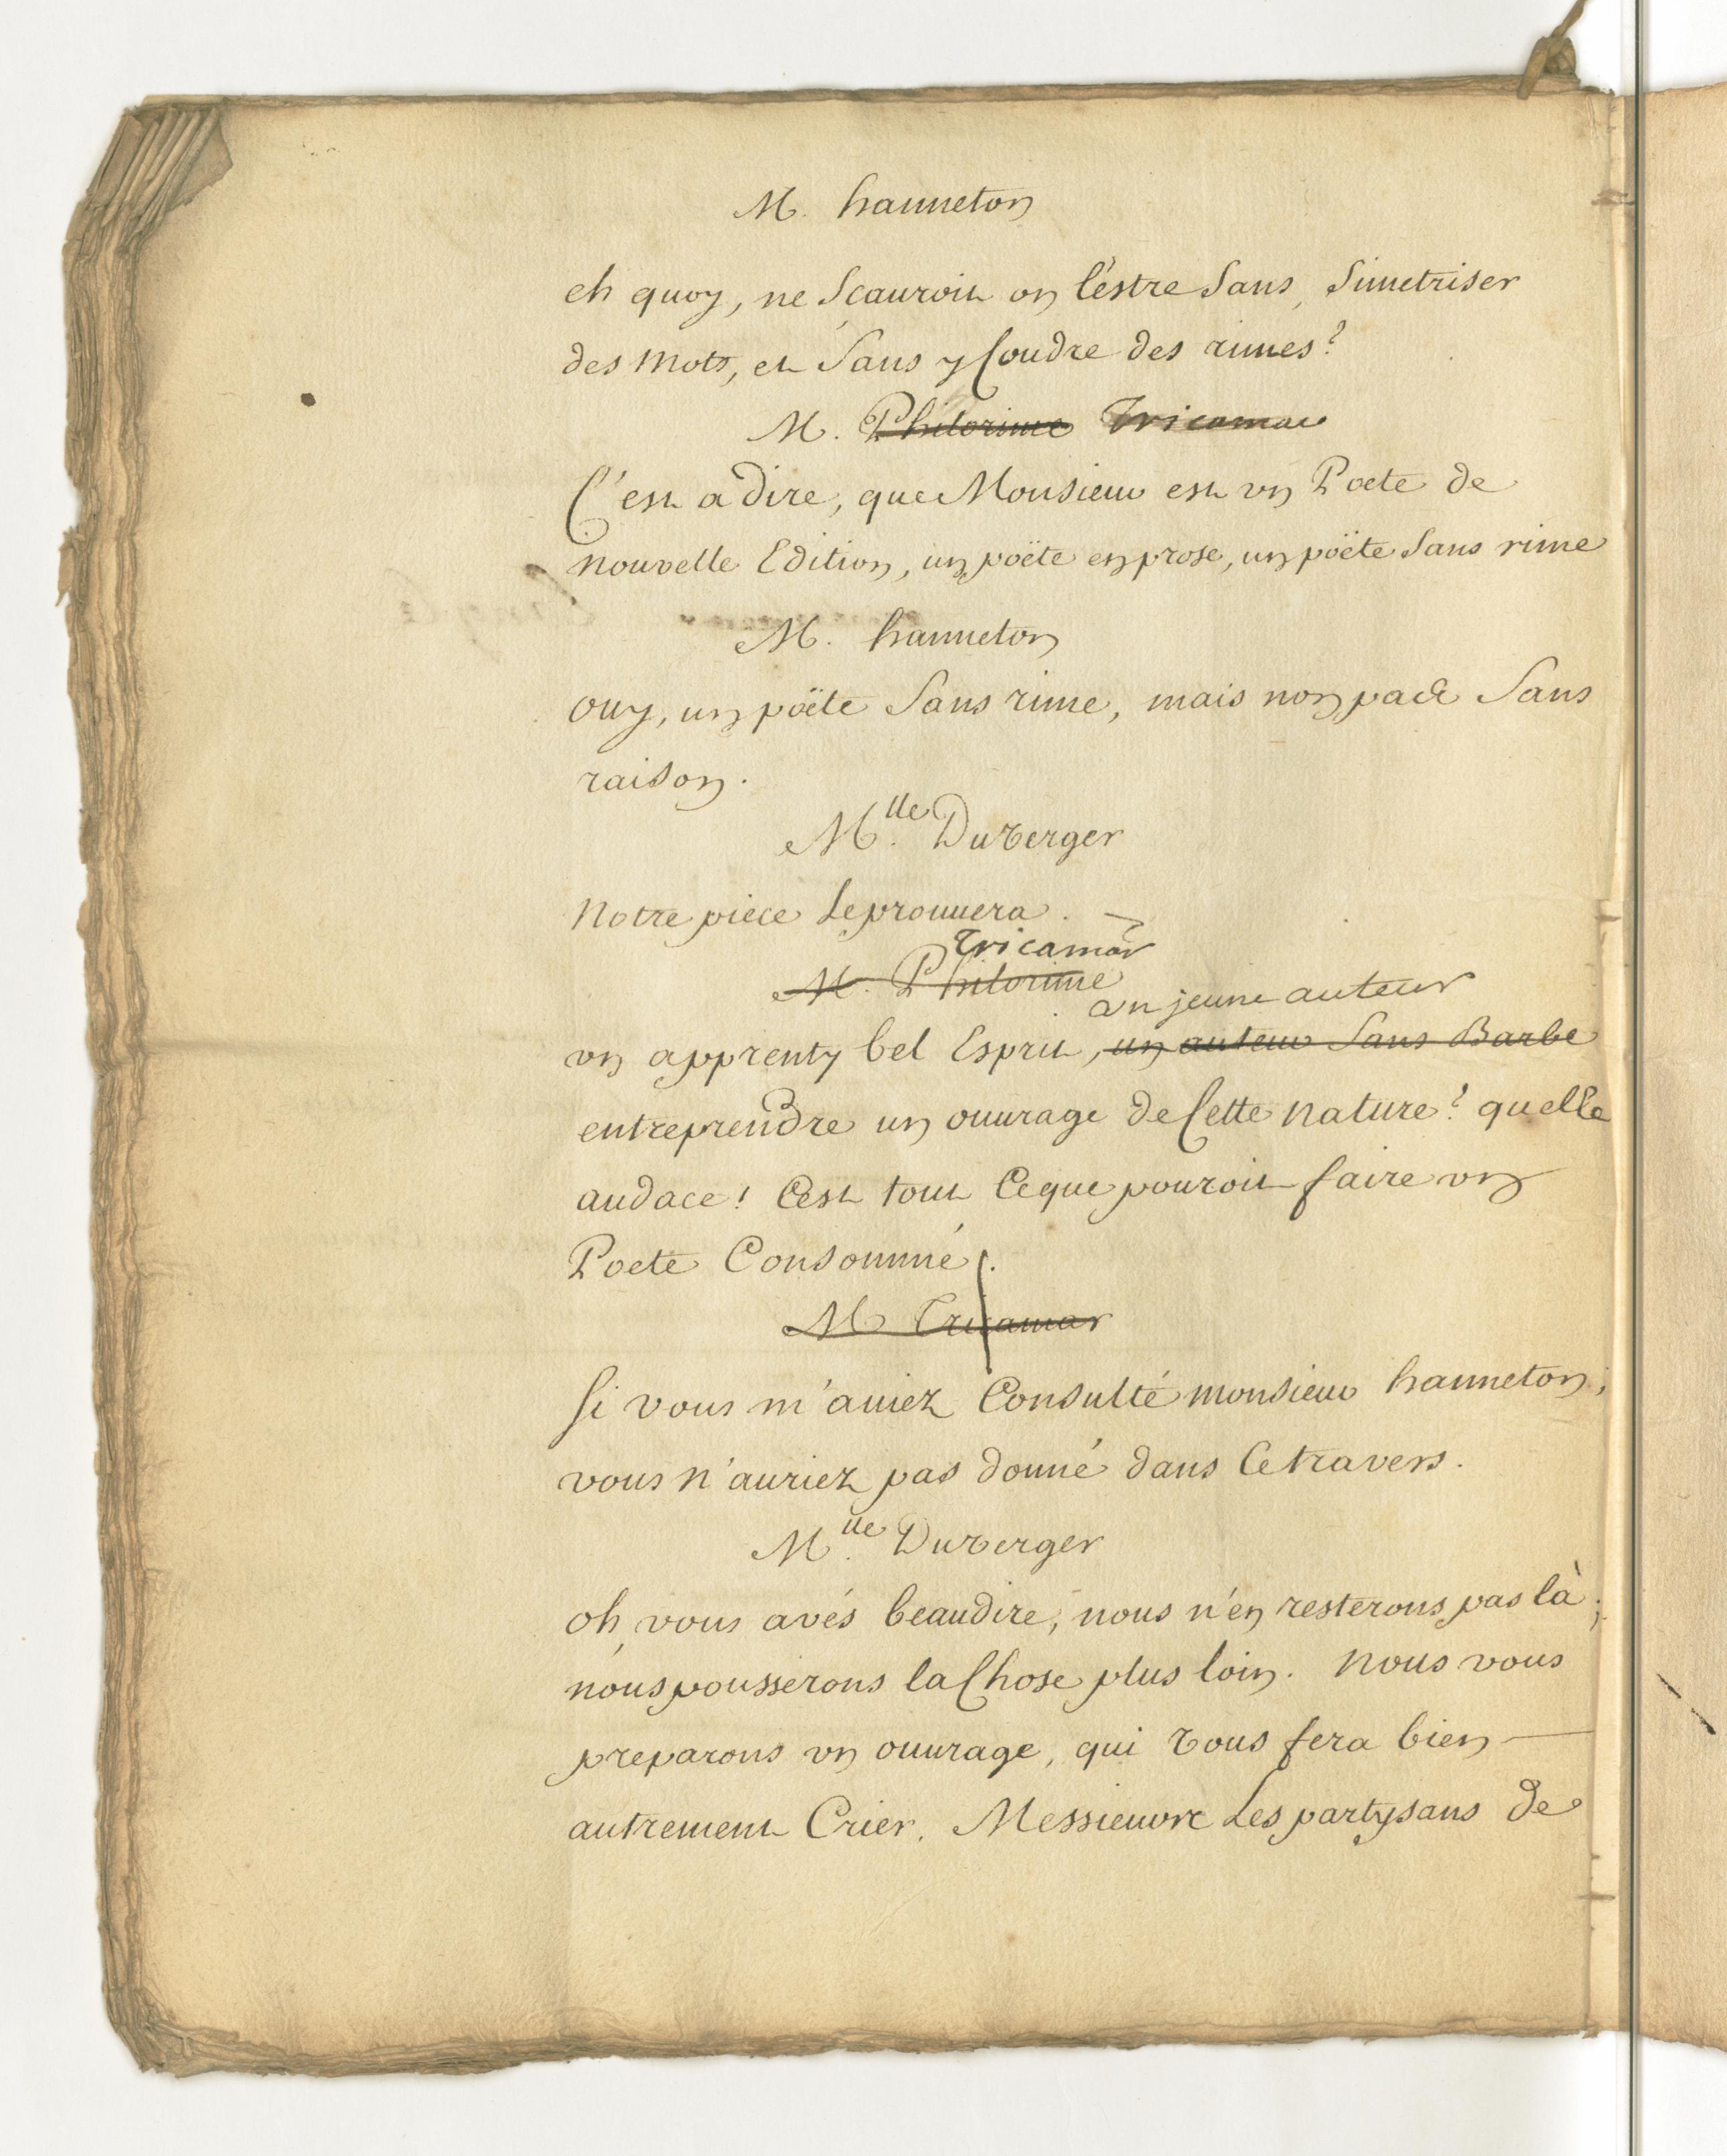 M. hanneton
eh quoy, ne Scauroit on l'estre Sans, Simetriser
des Mots, et Sans y Coudre des rimes?
M. Philorime Tricamar
C'est a dire, que Monsieur est vn Poete de
nouvelle Edition, un poëte en prose, un poëte Sans rime
M. hanneton
ouy, un poëte Sans rime, mais non pade Sans
raison.
Mlle. Duverger
Notre piece Le prouuera.
Tricamar
M. Philorime
un jeune auteur
vn apprenty bel Esprit, un auteur Sans Barbe
entreprendre un ouurage de Cette nature? quelle
audace! C'est tout Ce que pouroit faire vn
Poete Consommé.
M Tricamar
Si vous m'auiez Consulté monsieur hanneton,
vous n'auriez pas donné dans Ce travers.
Mlle. Duverger
oh, vous avés beau dire, nous n'en resterons pas là;
nous pousserons la Chose plus loin. Nous vous
preparons vn ouurage, qui vous fera bien
autrement Crier. Messieurs Les partysans de